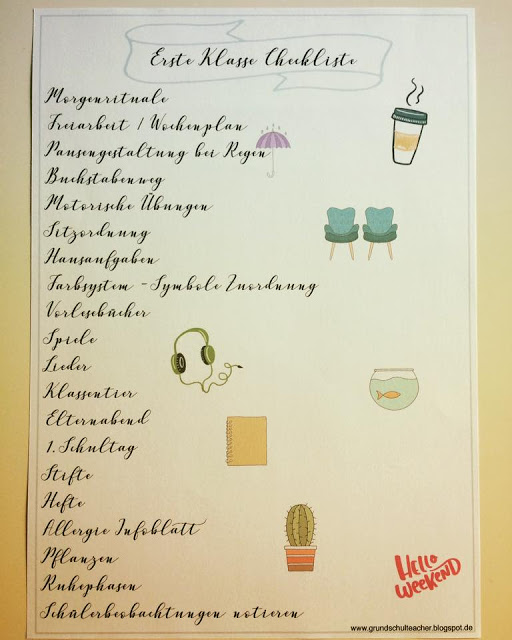 Erste Klasse Checkliste
Morgenrituale
Freiarbeit / Wochenplan
Pausengestaltung bei Regen
Buchstabenweg
Motorische Übungen
Sitzordnung
Hausaufgaben
Farbsystem - Symbole Zuordnung
Vorlesebücher
Spiele
Lieder
Klassentier
Elternabend
1. Schultag
Stifte
Hefte
Allergie Infoblatt
Pflanzen
Ruhephasen
Schülerbeobachtungen notieren
HELLO
WEEKEND
www.grundschulteacher.blogspot.de